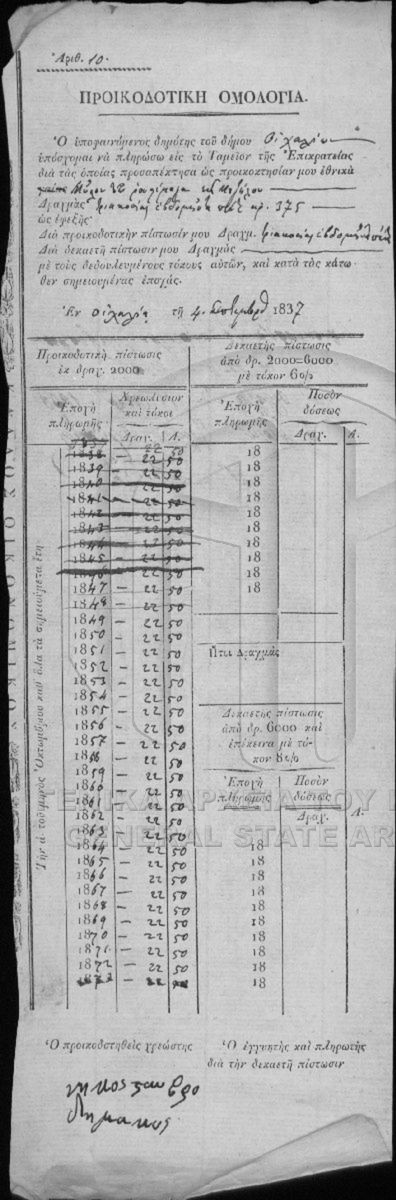 Ἀριθ. 10.
ΠΡΟΙΚΟΔΟΤΙΚΗ ΟΜΟΛΟΓΙΑ.
Ὁ ὑποφαινόμενος δημότης τοῦ δήμου Οἰχαλίας
ὑπόσχομαι νὰ πληρώσω εἰς τὸ Ταμεῖον τῆς Ἐπικρατείας
διὰ τὰς ὁποίας προσαπέκτησα ὡς προικοκτησίαν μου ἐθνικὰ
Δραχμὰς τριακοσίας ἑβδομήκοντα πέντε ἀρ. 375
ὡς ἐφεξῆς
Διὰ προικοδοτικὴν πίστωσίν μου Δραχμ. τριακοσίας ἑβδομήκοντα πέντε
Διὰ δεκαετῆ πίστωσιν μου Δραχμὰς
μὲ τοὺς δεδουλευμένους τόκους αὐτῶν, καὶ κατὰ τὰς κάτω-
θεν σημειουμένας ἐποχάς.
Ἐν Οἰχαλίᾳ τῇ 4 Σεπτεμβρ 1837
Προικοδοτικὴ πίστωσις
ἐκ δραχ. 2000
Ἐποχὴ
πληρωμῆς
Χρεωλύσιον
καὶ τόκοι
Δραχ. Λ.
Τὴν ά. τοῦ μηνὸς Ὀκτωβρίου καθ' ὅλα τὰ σημειούμενα ἔτη
1838 — 22 50
1839 — 22 50
1840 — 22 50
1841 — 22 50
1842 — 22 50
1843 — 22 50
1844 — 22 50
1845 — 22 50
1846 — 22 50
1847 — 22 50
1848 — 22 50
1849 — 22 50
1850 — 22 50
1851 — 22 50
1852 — 22 50
1853 — 22 50
1854 — 22 50
1855 — 22 50
1856 — 22 50
1857 — 22 50
1858 — 22 50
1859 — 22 50
1860 — 22 50
1861 — 22 50
1862 — 22 50
1863 — 22 50
1864 — 22 50
1865 — 22 50
1866 — 22 50
1867 — 22 50
1868 — 22 50
1869 — 22 50
1870 — 22 50
1871 — 22 50
1872 — 22 50
1873 — 22
Δεκαετὴς πίστωσις
ἀπὸ δρ. 2000=6000
μὲ τόκον 6 0/0
Ἐποχὴ
πληρωμῆς
Ποσὸν
δόσεως
Δραχ. Λ.
18
18
18
18
18
18
18
18
18
18
Ἤτοι Δραχμάς
Δεκαετὴς πίστωσις
ἀπὸ δρ. 6000 καὶ
ἐπέκεινα μὲ τό-
κον 8 0/0
Ἐποχὴ
πληρωμῆς
Ποσὸν
δόσεως
Δραχ. Λ.
18
18
18
18
18
18
18
18
18
18
ΓΕΝΙΚΑ ΑΡΧΕΙΑ ΤΟΥ
GENERAL STATE AR
Ὁ προικοδοτηθεὶς χρεώστης
Ὁ ἐγγυητὴς καὶ πληρωτὴς
διὰ τὴν δεκαετῆ πίστωσιν